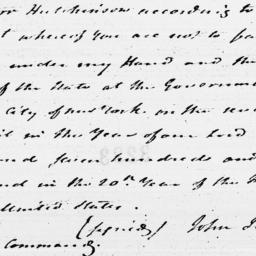 or Hutchinson according to
t whereof You are not to fa
under my Hand and the
of the State at the Governm
City of New York on the
it in the Year of our Lord
nd seven hundreds and
nd in the 20th Year of the
United States.
(signed) John J
Command,